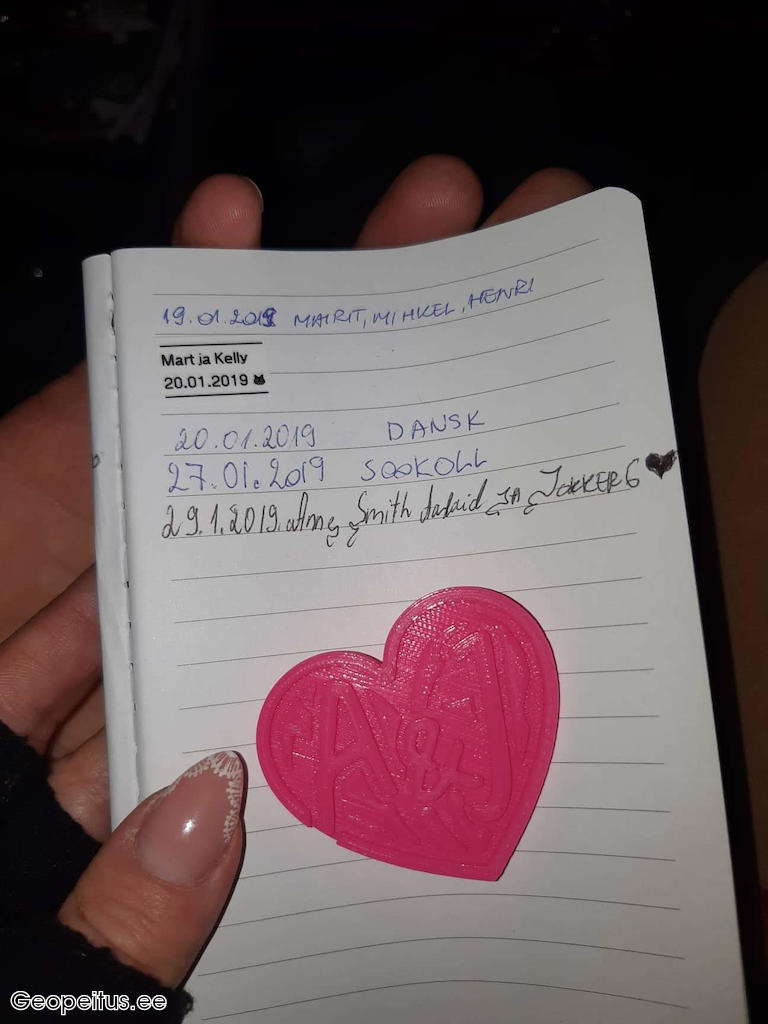 19.01.2019 MAIRIT, MIHKEL, HENRI
Mart ja Kelly
20.01.2019
20.01.2019 DANSK
27.01.2019 SOOKOLL
29.1.2019. Smith JA JOKKER6 ♥
A & J
Geopeitus.ee